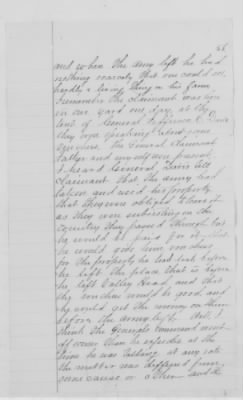 and when the army left he had
nothing scarcely that one could see
hardly a living thing on his farm
I remember the claimant was
in our yard one day, at the
tent of General Jefferson C. Davis
they were speaking about some
The General claimant
father and myself were present
I heard General Davis tell
claimant that the army had
taken and used his property
that they were obliged to have it
as they were subsisting on the
country they passed through, but
he would be paid for it. that
he would give him vouchers
for the property he had lost before
he left the place that is before
he left Valley Head, and that
the vouchers would be good and
he could get the money on them
before the army left. Well, I
think the Generals command moved
off sooner than he expected at the
time he was talking at any rate
the matter was deferred from
some cause or other and the